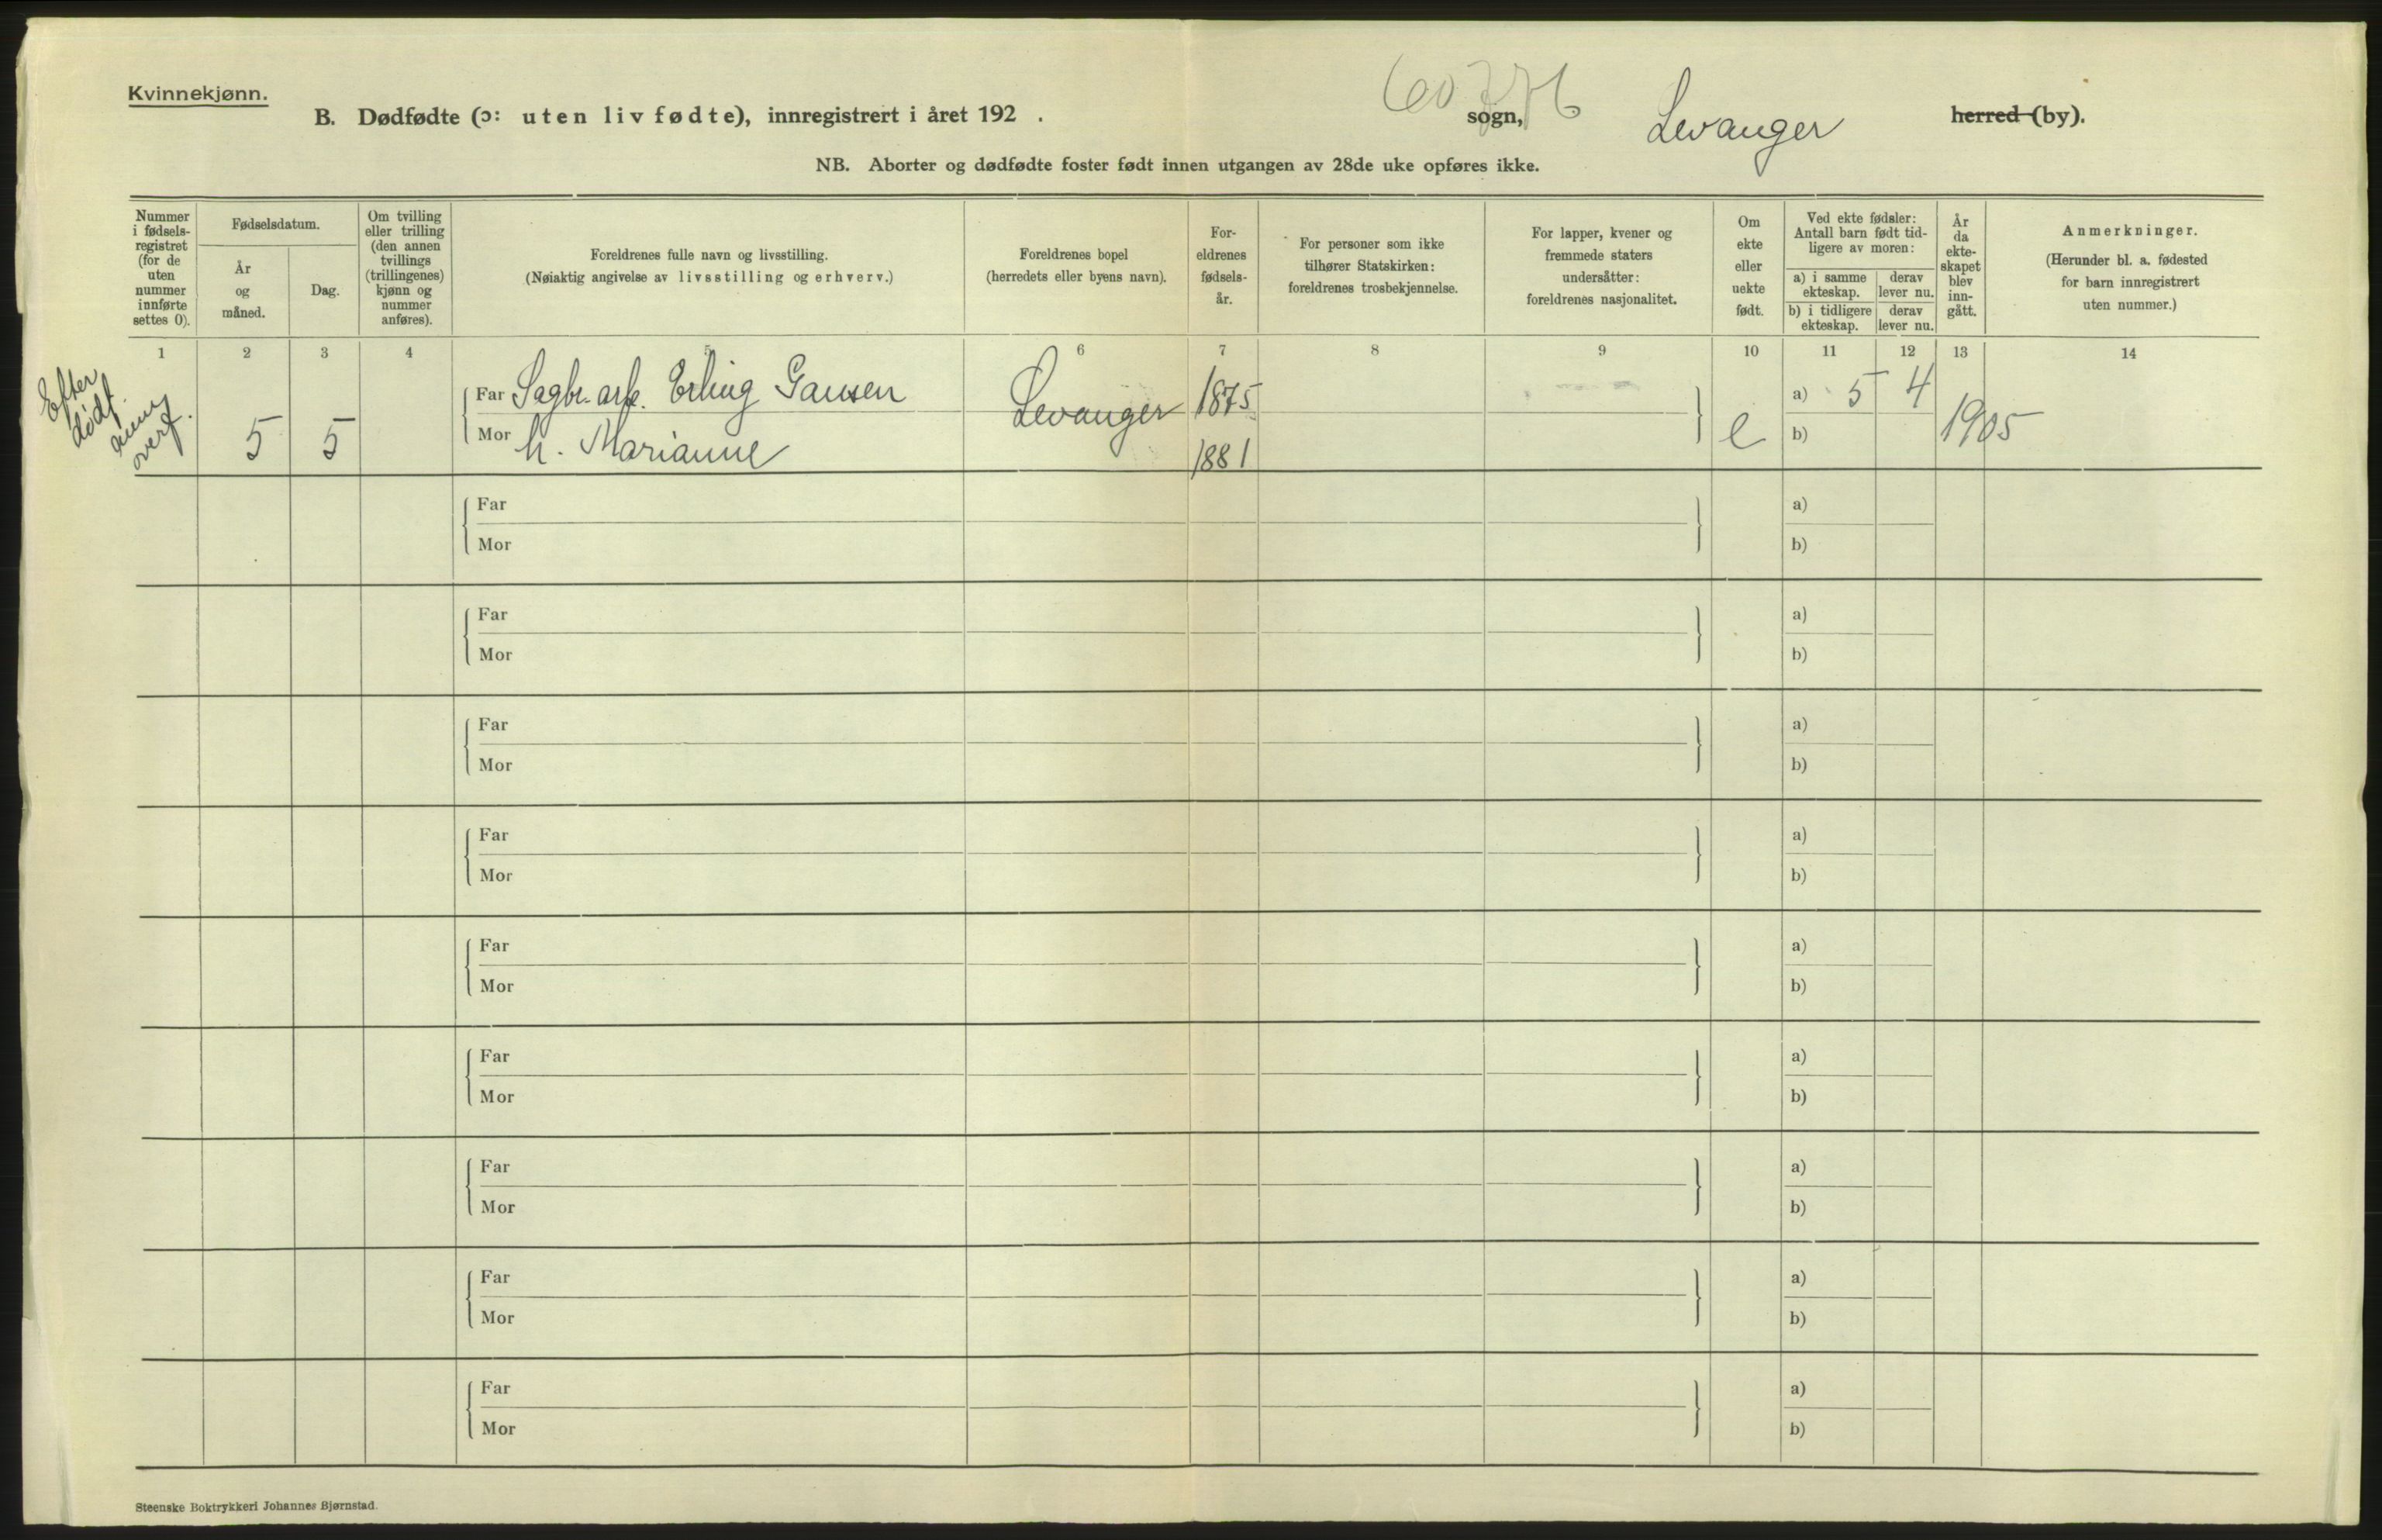 Kvinnekjønn.
B. Dødfødte (ɔ: uten liv fødte), innregistrert i året 192 .
sogn,
Levanger
herred (by).
NB. Aborter og dødfødte foster født innen utgangen av 28de uke opføres ikke.
Nummer i fødsels-registret (for de uten nummer innførte settes 0).
Fødselsdatum.
År og måned.
Dag.
Om tvilling eller trilling (den annen tvillings (trillingenes) kjønn og nummer anføres).
Foreldrenes fulle navn og livsstilling.
(Nøiaktig angivelse av livsstilling og erhverv.)
Foreldrenes bopel
(herredets eller byens navn).
For-eldrenes fødsels-år.
For personer som ikke tilhører Statskirken: foreldrenes trosbekjennelse.
For lapper, kvener og fremmede staters undersåtter: foreldrenes nasjonalitet.
Om ekte eller uekte født.
Ved ekte fødsler: Antall barn født tid-ligere av moren:
a) i samme ekteskap.
derav lever nu.
b) i tidligere ekteskap.
derav lever nu.
År da ekte-skapet blev inn-gått.
Anmerkninger.
(Herunder bl. a. fødested for barn innregistrert uten nummer.)
1 2 3 4 5 6 7 8 9 10 11 12 13 14
Efter
dødf.
overf.
5 5
Far Sagbr.arb. Erling Jansen Levanger 1875 a) 5 4
Mor h. Marianne 1881 e b) 1905
Far a)
Mor b)
Far a)
Mor b)
Far a)
Mor b)
Far a)
Mor b)
Far a)
Mor b)
Far a)
Mor b)
Far a)
Mor b)
Far a)
Mor b)
Far a)
Mor b)
Steenske Boktrykkeri Johannes Bjørnstad.